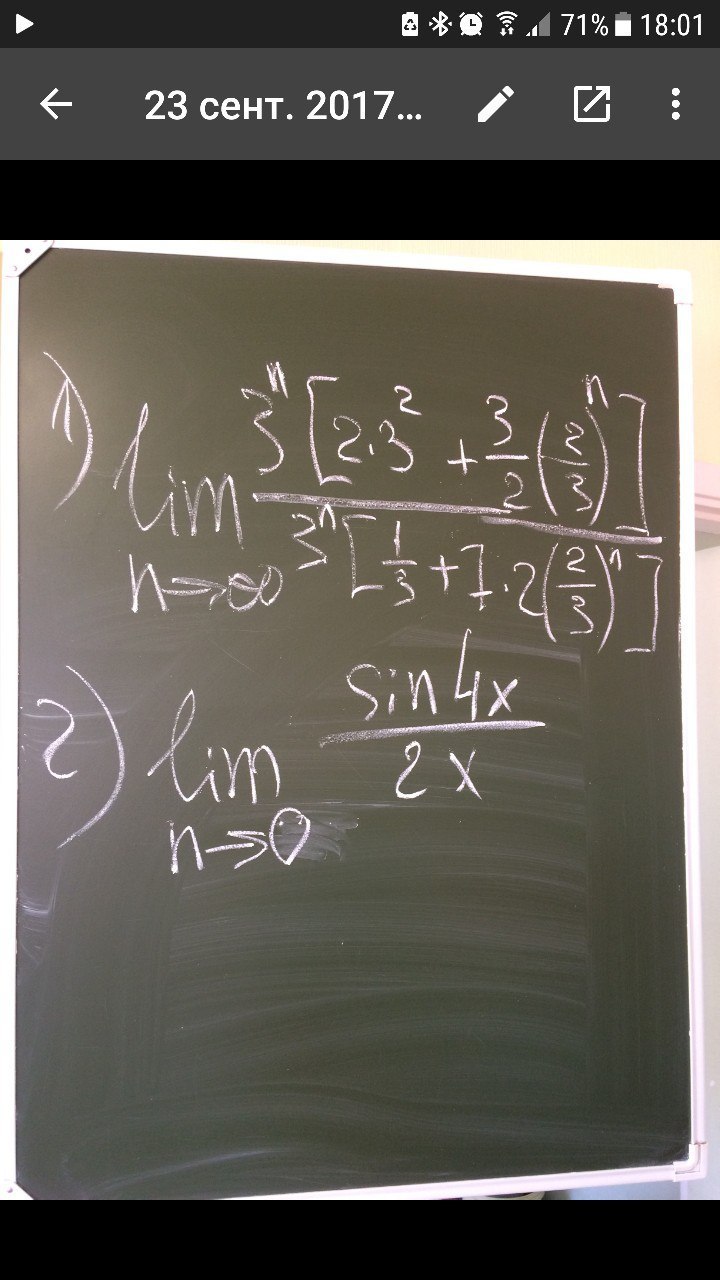 71% 18:01
23 сент. 2017...
1) lim n→∞ 3^n [2·3^2 + 3/2 (2/3)^n] / 3^n [1/3 + 7·2 (2/3)^n]
2) lim n→0 sin 4x / 2x